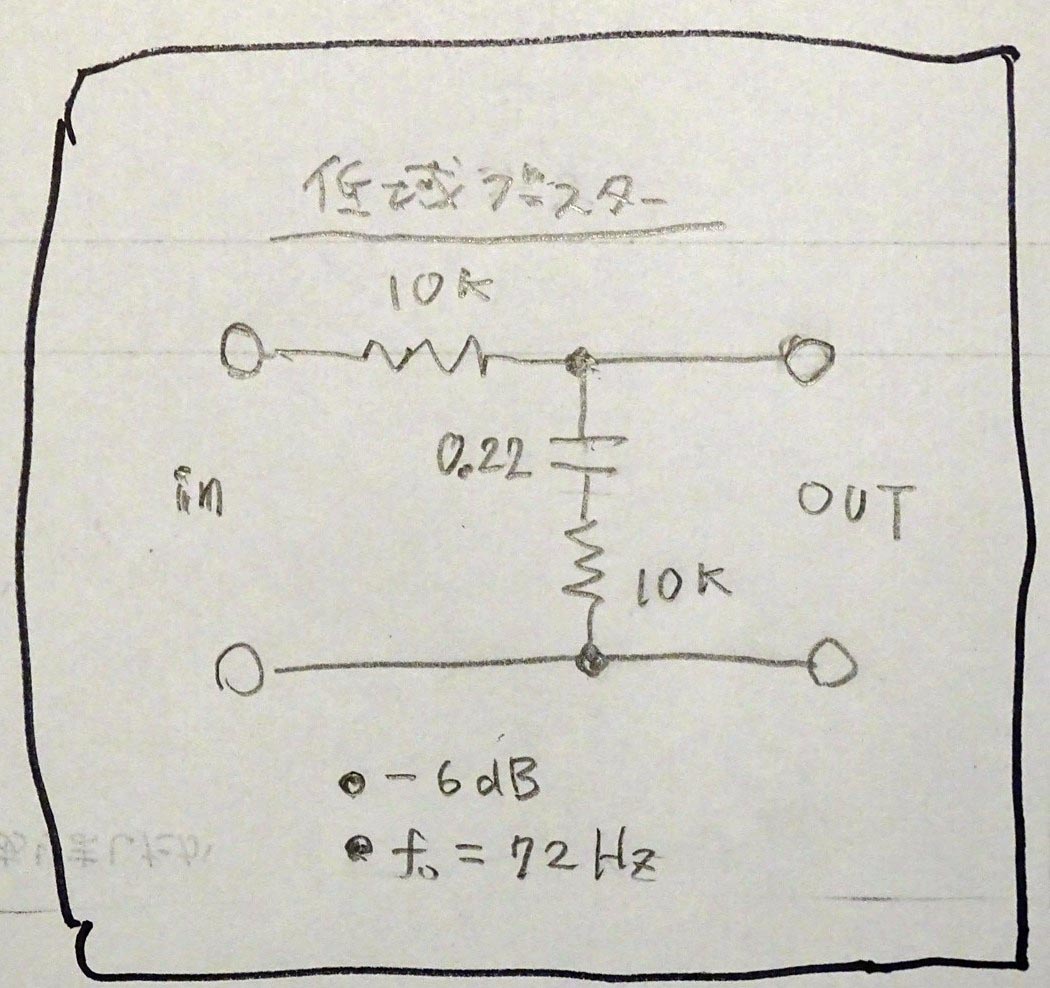 低域ブースター
10K
0.22
in
OUT
10K
● -6dB
● f₀ = 72Hz